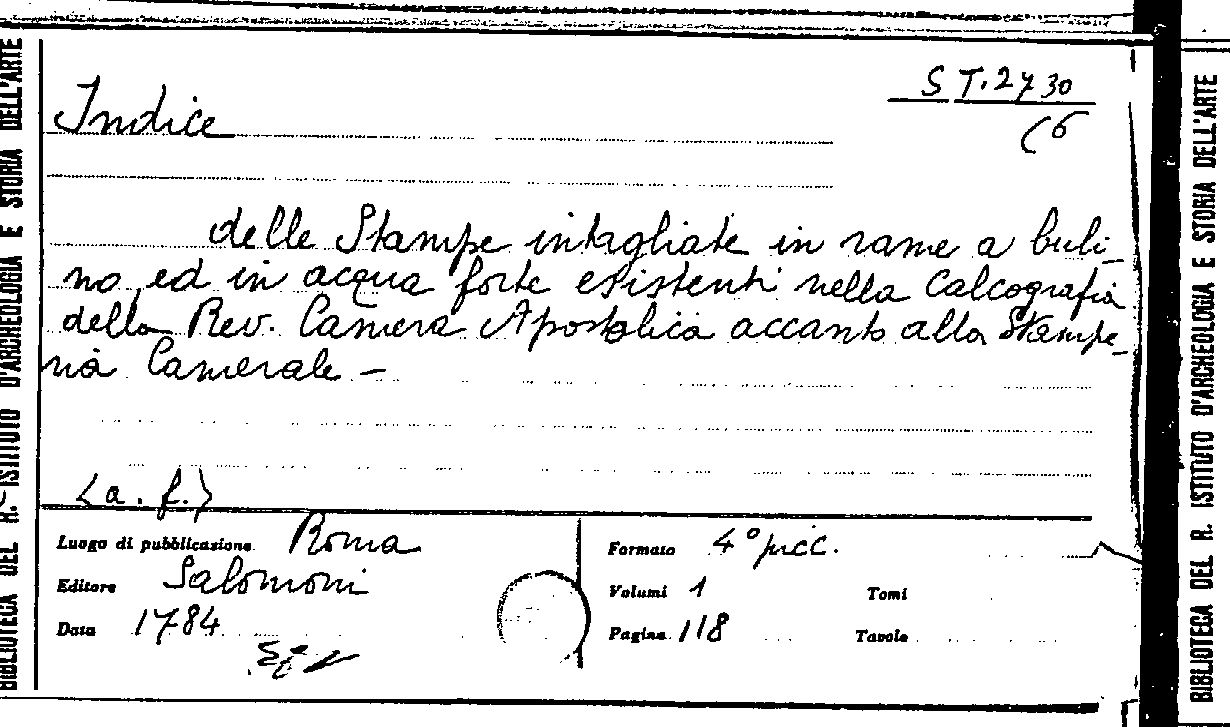 BIBLIOTECA DEL R. ISTITUTO D'ARCHEOLOGIA E STORIA DELL'ARTE
S T. 2730
(6
Indice
delle Stampe intagliate in rame a buli-
no ed in acqua forte esistenti nella Calcografia
della Rev. Camera Apostolica accanto alla Stampe-
ria Camerale -
<a. f.>
Luogo di pubblicazione Roma
Editore Salomoni
Data 1784
Formato 4° picc.
Volumi 1 Tomi
Pagine 118 Tavole
BIBLIOTECA DEL R. ISTITUTO D'ARCHEOLOGIA E STORIA DELL'ARTE